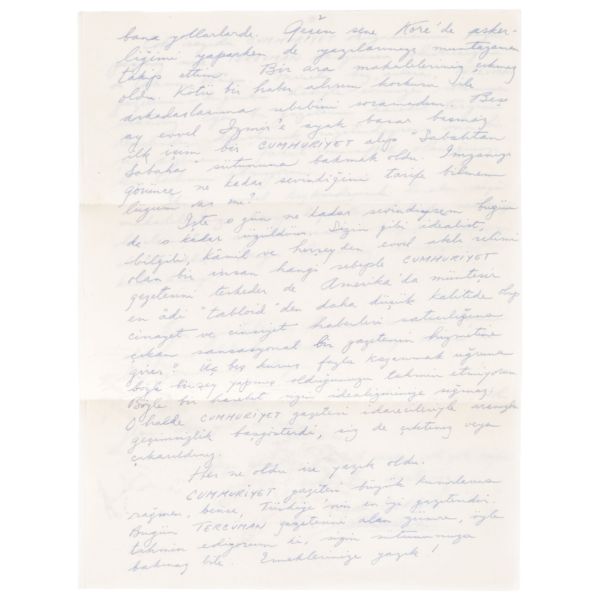 2
bana yollarlarde. Geçen sene Kore'de asker-
liğimi yaparken de yazılarınızı muntazaman
takip ettim. Bir ara makaleleriniz çıkmaz
oldu. Kötü bir haber alırım korkusu ile
arkadaşlarıma sebebini soramadım. Beş
ay evvel İzmir'e ayak basar basmaz
ilk işim bir CUMHURİYET alıp "Sabahtan
Sabaha" sütununa bakmak oldu. İmzanızı
görünce ne kadar sevindiğimi tarife bilmem
lüzum var mı?
İşte o gün ne kadar sevindiysem bugün
de o kadar üzüldüm. Sizin gibi idealist,
bilgili, kâmil ve herşeyden evvel akla selimi
olan bir insan hangi sebeple CUMHURİYET
gazetesini terkeder de Amerika'da münteşir
en âdi "tabloid"den daha düşük kalitede olup
cinayet ve cinsiyet haberleri satıcılığına
çıkan sansasyonal bir gazetenin hizmetine
girer? Üç beş kuruş fazla kazanmak uğruna
böyle birşey yapmış olduğunuzu tahmin etmiyorum
Böyle bir hareket sizin idealizminize sığmaz.
O halde CUMHURİYET gazetesi idarecileriyle aranızda
geçimsizlik başgösterdi, siz de çıktınız veya
çıkarıldınız.
Her ne oldu ise yazık oldu.
CUMHURİYET gazetesi büyük kusurlarına
rağmen, bence, Türkiye'nin en iyi gazetesidir.
Bugün TERCÜMAN gazetesini alan zümre, öyle
tahmin ediyorum ki, sizin sütununuza
bakmaz bile. Emeklerinize yazık!